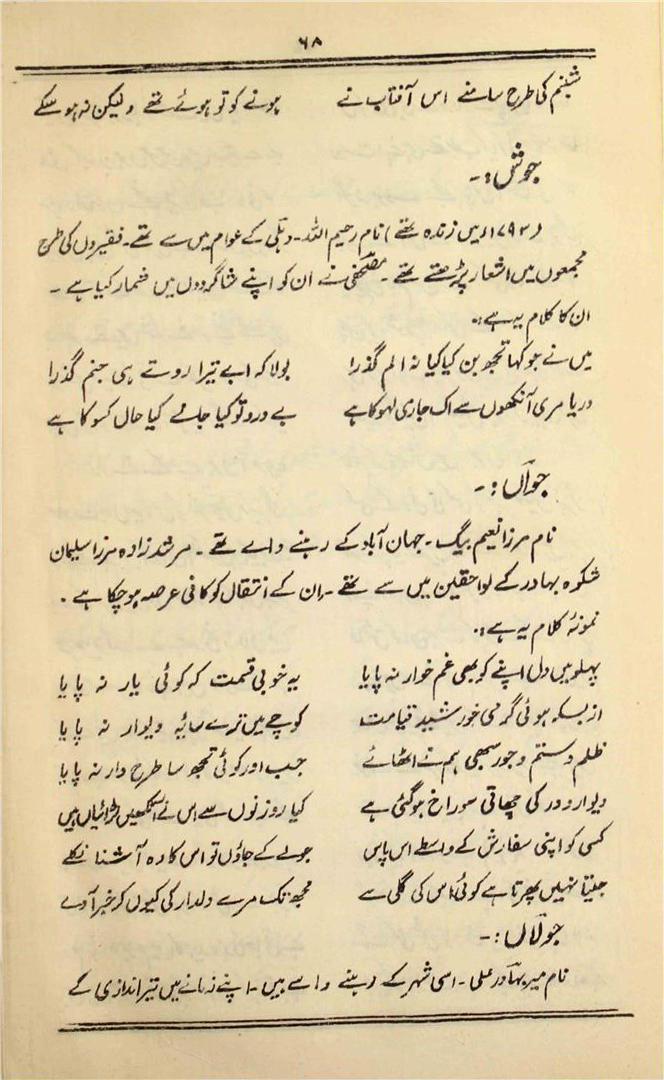 ۶۸
شبنم کی طرح سامنے اس آفتاب نے ہونے کو تو ہوئے تھے ولیکن نہ ہو سکے
جوش :۔
(۱۷۹۳ء میں زندہ تھے) نام رحیم اللہ۔ دہلی کے عوام میں سے تھے۔ فقیروں کی طرح
مجمعوں میں اشعار پڑھتے تھے۔ مصحفی نے ان کو اپنے شاگردوں میں شمار کیا ہے۔
ان کا کلام یہ ہے :۔
میں نے جو کہا تجھ بن کیا کیا نہ الم گذرا بولا کہ ابے تیرا روتے ہی جنم گذرا
دریا مری آنکھوں سے اک جاری لہو کا ہے بے درد تو کیا جانے کیا حال کسو کا ہے
جواں :۔
نام مرزا نعیم بیگ۔ جہان آباد کے رہنے والے تھے۔ مرشد زادہ مرزا سلیمان
شکوہ بہادر کے لواحقین میں سے تھے۔ ان کے انتقال کو کافی عرصہ ہو چکا ہے۔
نمونۂ کلام یہ ہے :۔
پہلو میں دل اپنے کو بھی غم خوار نہ پایا یہ خوبی قسمت کہ کوئی یار نہ پایا
از بسکہ ہوئی گرمی خورشید قیامت کوچے میں ترے سایۂ دیوار نہ پایا
ظلم و ستم و جور سبھی ہم نے اٹھائے جب اور کوئی تجھ سا طرح دار نہ پایا
دیوار و در کی چھاتی سوراخ ہو گئی ہے کیا روزنوں سے اس نے آنکھیں لڑائیاں ہیں
کسی کو اپنی سفارش کے واسطے اس پاس جو لے کے جاؤں تو اس کا وہ آشنا نکلے
جیتا نہیں پھرتا ہے کوئی اس کی گلی سے مجھ تک مرے دلدار کی کیوں کر خبر آوے
جولاں :۔
نام میر بہادر علی۔ اسی شہر کے رہنے والے ہیں۔ اپنے زمانے میں تیر اندازی کے